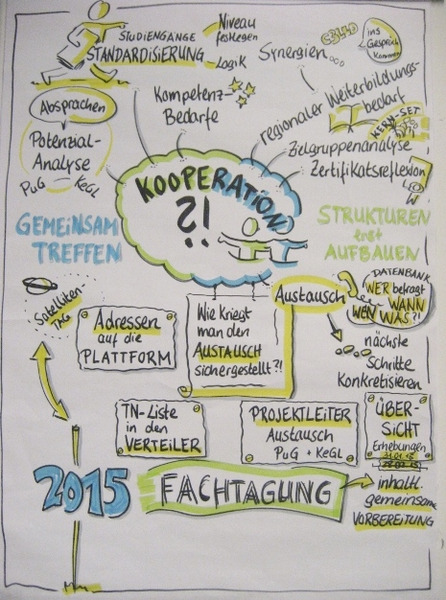 STUDIENGÄNGE
STANDARDiSiERUNG
Niveau
festlegen
Logik
Synergien...
GELD
ins
Gespräch
kommen
Absprachen
Potenzial-
Analyse
PuG KeGL
Kompetenz-
Bedarfe
regionaler Weiterbildungs-
bedarf
KERN-SET
Zielgruppenanalyse
Zertifikatsreflexion
KOOPERATION
?!
GEMEiNSAM
TREFFEN
STRUKTUREN
erst
AUFBAUEN
Satelliten-
TAG
Adressen
auf die
PLATTFORM
Wie kriegt
man den
AUSTAUSCH
sichergestellt?!
Austausch
DATENBANK
WER befragt
WEN WANN
WAS?!
nächste
Schritte
Konkretisieren
TN-Liste
in den
VERTEiLER
PROJEKTLEiTER
Austausch
PuG + KeGL
ÜBER-
SiCHT
Erhebungen
2015
FACHTAGUNG
inhaltl.
gemeinsame
VORBEREiTUNG